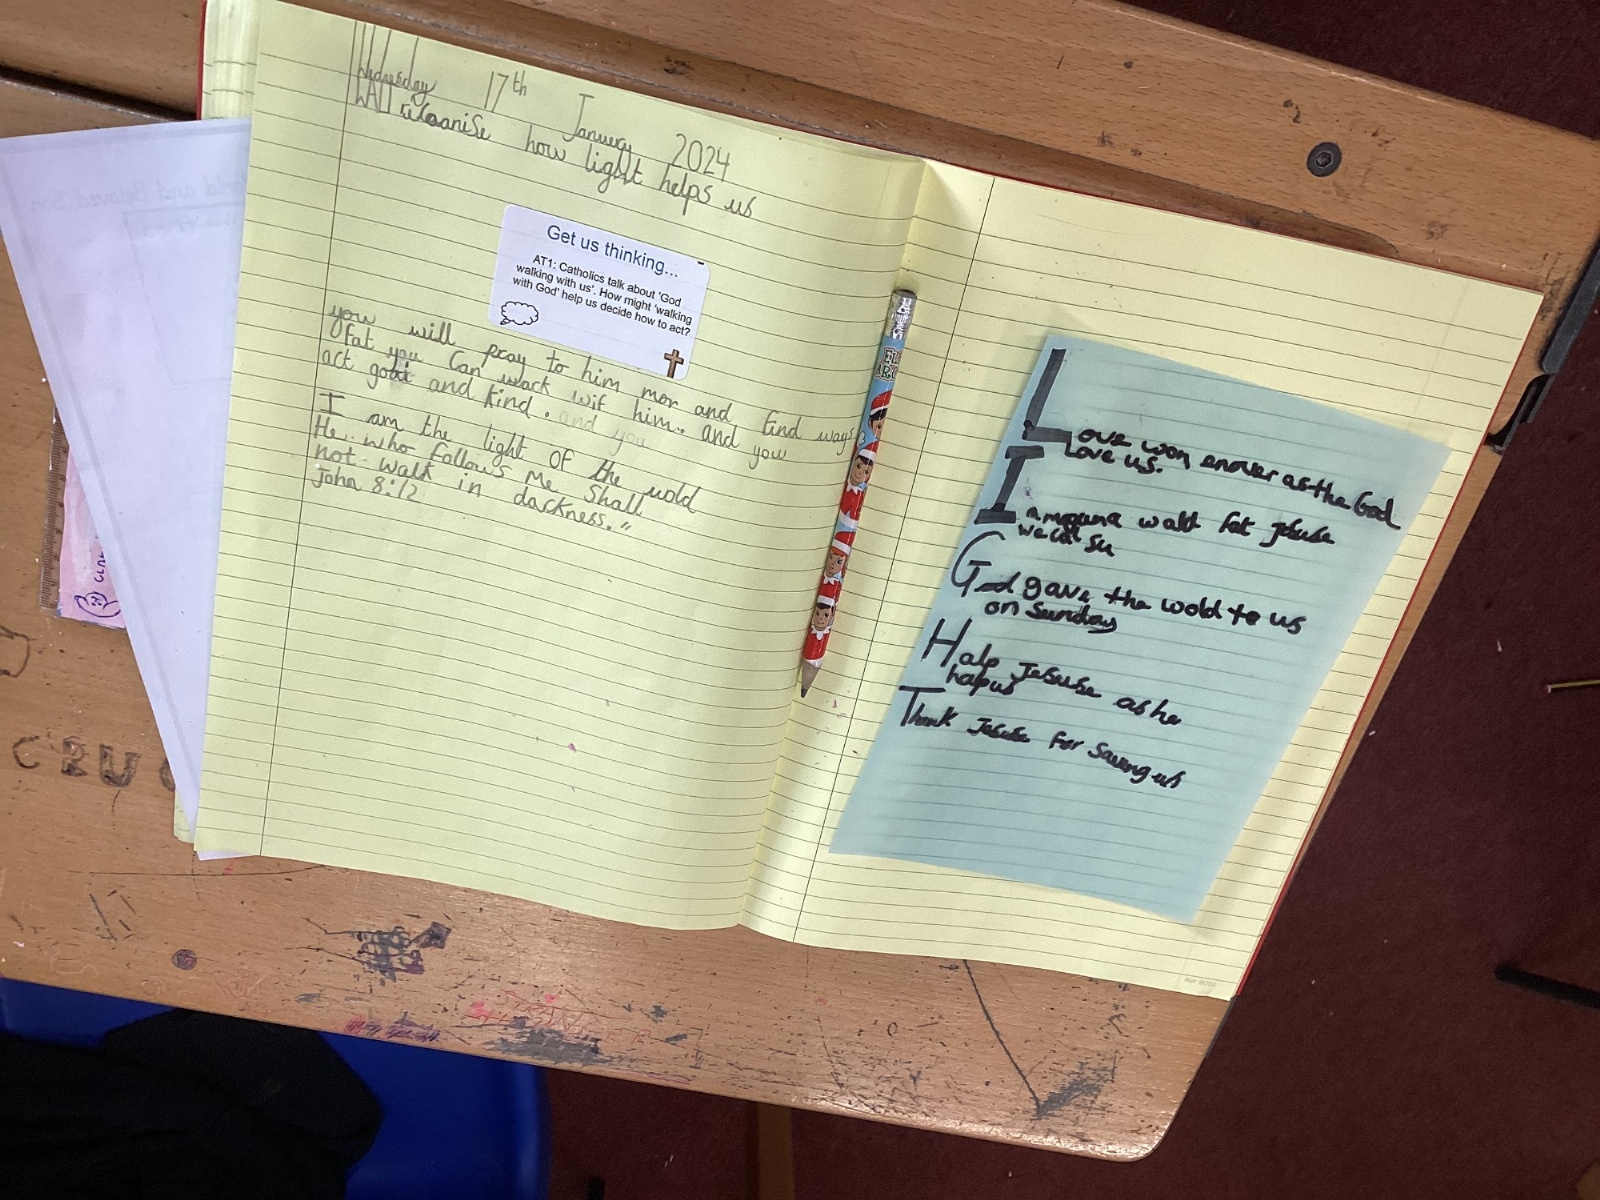 Wednesday 17th January 2024
WALT recoanise how light helps us
Get us thinking...
AT1: Catholics talk about 'God
walking with us'. How might 'walking
with God' help us decide how to act?
you will pray to him mor and find ways
fat you can wack wif him. and you
act good and kind. and you
I am the light of the wold
He.. who follows me shall
not walk in darkness."
John 8:12
Love won enover as the God
Love us.
I amaguna walt fat jesuse
God gave the wold to us
on Sunday
Halp Jesuse as he
hapus
Thank Jesuse for Saveng us
CRU